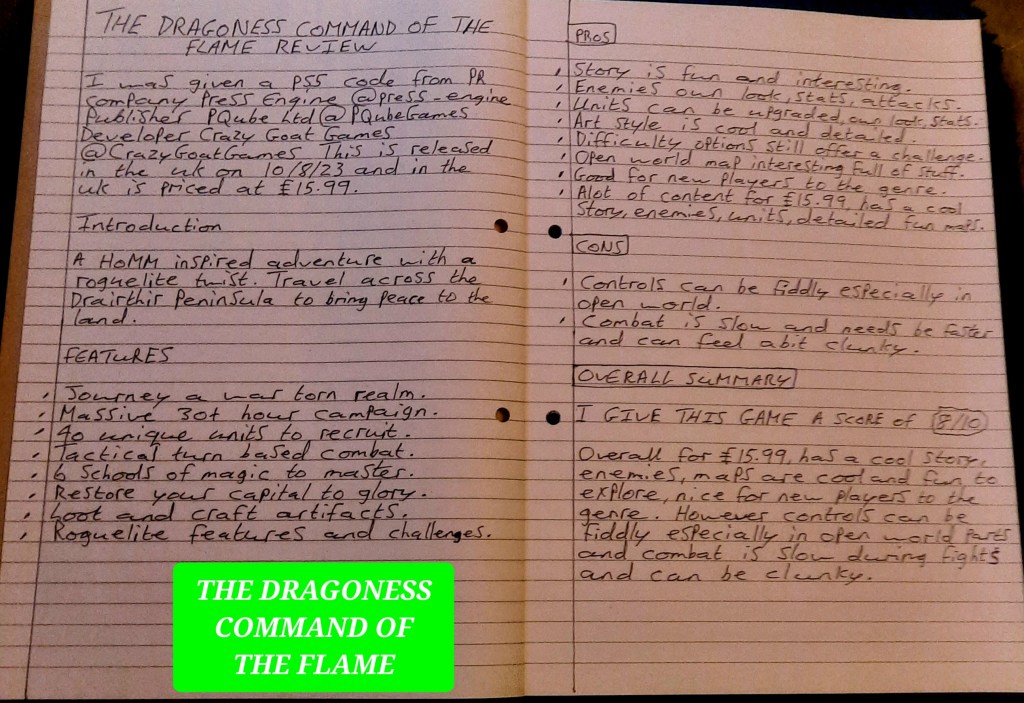 THE DRAGONESS COMMAND OF THE
FLAME REVIEW
I was given a PS5 code from PR
company Press Engine @press_engine
Publisher PQube Ltd @PQubeGames
Developer Crazy Goat Games
@CrazyGoatGames This is released
in the uk on 10/8/23 and in the
uk is priced at £15.99.
Introduction
A HoMM inspired adventure with a
roguelite twist. Travel across the
Drairthir Peninsula to bring peace to the
land.
FEATURES
• Journey a war torn realm.
• Massive 30+ hour campaign.
• 40 unique units to recruit.
• Tactical turn based combat.
• 6 Schools of magic to master.
• Restore your capital to glory.
• Loot and craft artifacts.
• Roguelite features and challenges.
THE DRAGONESS
COMMAND OF
THE FLAME
PROS
• Story is fun and interesting.
• Enemies own look, stats, attacks.
• Units can be upgraded, own look, stats.
• Art style is cool and detailed.
• Difficulty options still offer a challenge.
• Open world map interesting full of stuff.
• Good for new players to the genre.
• Alot of content for £15.99 has a cool
story, enemies, units, detailed fun maps.
CONS
• Controls can be fiddly especially in
open world.
• Combat is slow and needs be faster
and can feel abit clunky.
OVERALL SUMMARY
I GIVE THIS GAME A SCORE OF 8/10
Overall for £15.99, has a cool story,
enemies, maps are cool and fun to
explore, nice for new players to the
genre. However controls can be
fiddly especially in open world parts
and combat is slow during fights
and can be clunky.